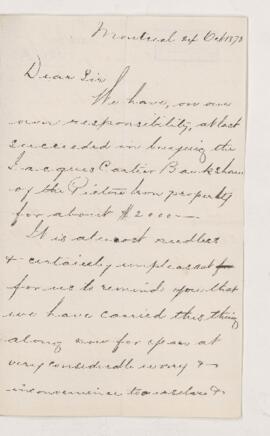 Montreal 24 Oct 1878
Dear Sir
We have, on our
own responsibility, at last
succeeded in buying the
Jacques Cartier Bank share
of the Pictou Iron property
for about $2000—
It is almost needless
& certainly unpleasant
for us to remind you that
we have carried this thing
along now for years at
very considerable worry &
inconvenience to ourselves &